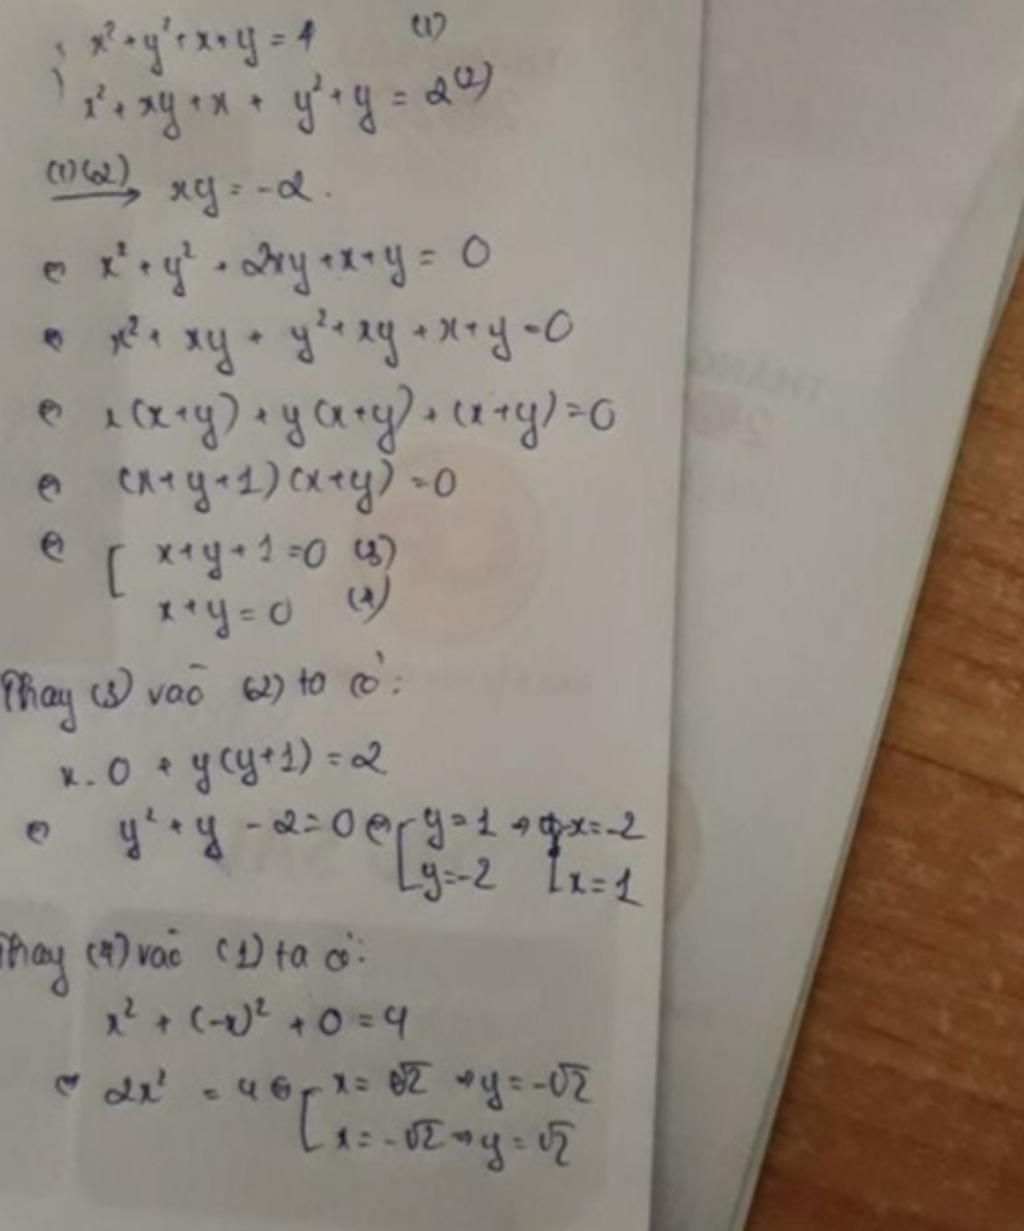 x² + y² + x + y = 4 (1)
x² + xy + x + y² + y = 2 (2)
(1)(2) → xy = -2.
⇔ x² + y² + 2xy + x + y = 0
⇔ x² + xy + y² + xy + x + y = 0
⇔ x(x+y) + y(x+y) + (x+y) = 0
⇔ (x+y+1)(x+y) = 0
⇔ [ x+y+1 = 0 (3)
x+y = 0 (4)
Thay (3) vào (2) ta có:
x.0 + y(y+1) = 2
⇔ y² + y - 2 = 0 ⇔ [ y = 1 ⇒ [ x = -2
y = -2 x = 1
Thay (4) vào (1) ta có:
x² + (-x)² + 0 = 4
⇔ 2x² = 4 ⇔ [ x = √2 ⇒ y = -√2
x = -√2 ⇒ y = √2